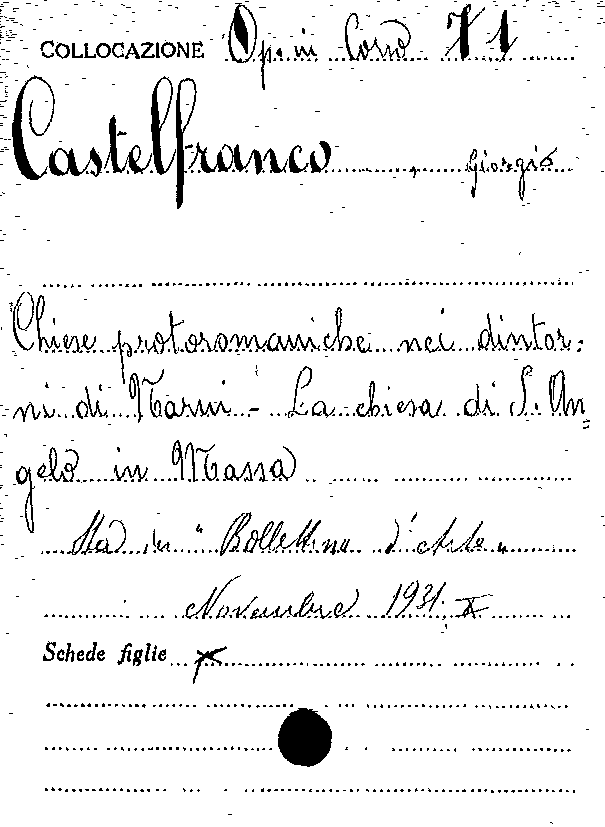 COLLOCAZIONE Op. in Corso 71
Castelfranco, Giorgio
Chiese protoromaniche nei dintor=
ni di Narni - La chiesa di S. An=
gelo in Massa
Sta in "Bollettino d'Arte"
Novembre 1931, X
Schede figlie x